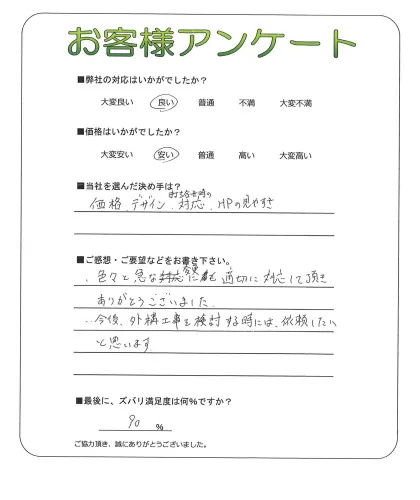 お客様アンケート
■弊社の対応はいかがでしたか?
大変良い 良い 普通 不満 大変不満
■価格はいかがでしたか?
大変安い 安い 普通 高い 大変高い
■当社を選んだ決め手は?
お客様の
価格、デザイン、対応、HPの見やすさ
■ご感想・ご要望などをお書き下さい。
変更
・色々と急な にも適切に対応して頂き
ありがとうございました。
・今後、外構工事を検討する時には、依頼したい
と思います
■最後に、ズバリ満足度は何%ですか?
90 %
ご協力頂き、誠にありがとうございました。